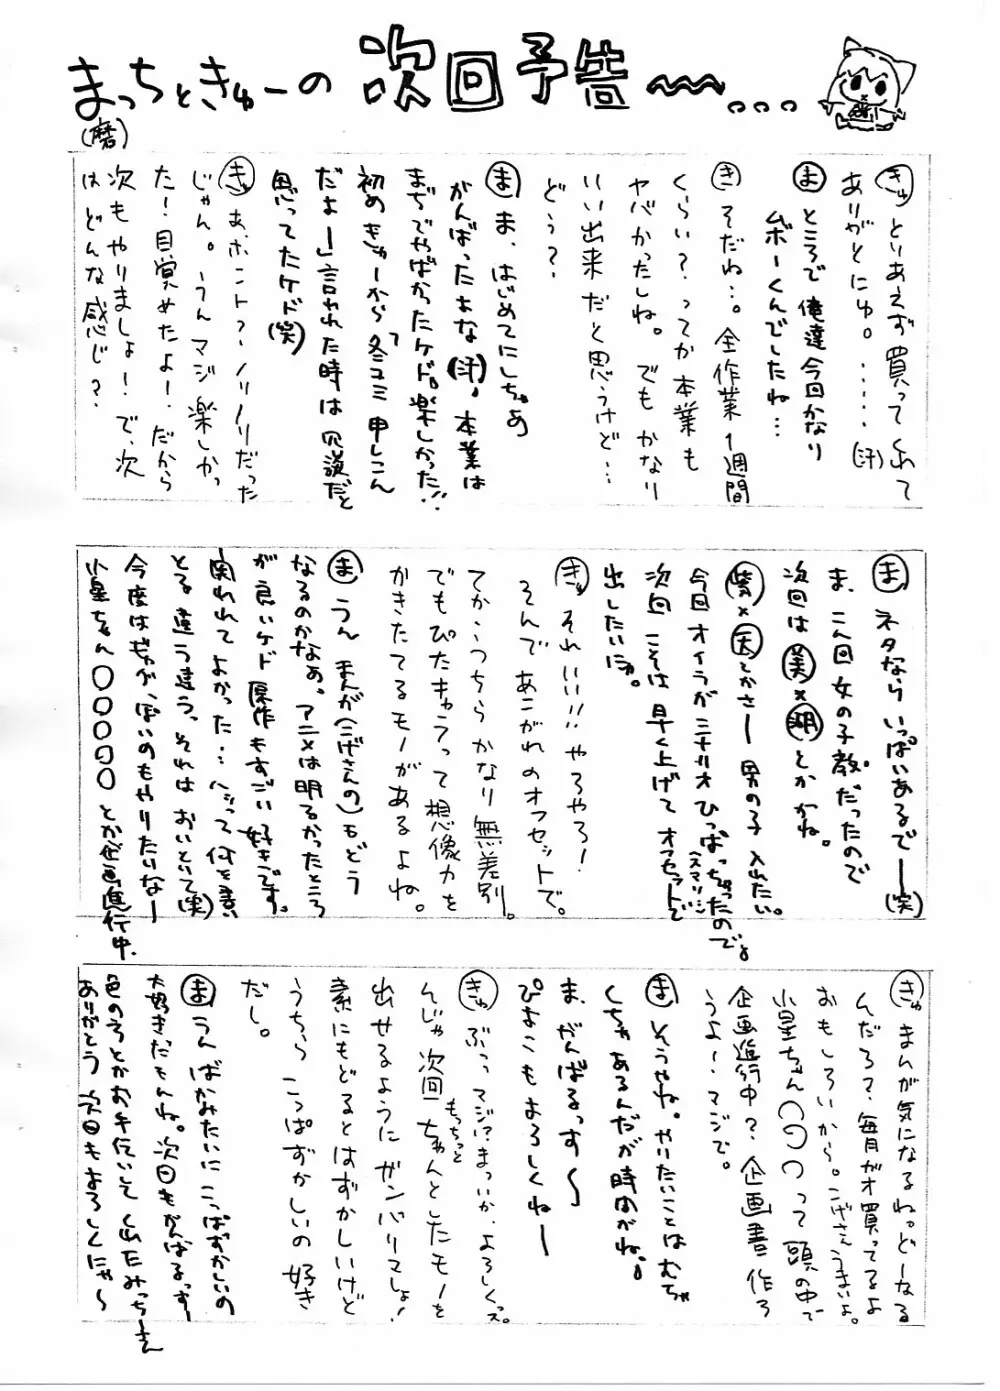 まっちときゅーの 次回予告〜…
(磨)
きゅ とりあえず買ってくれて
ありがとにゅ。……(汗)
ま ところで俺達今回かなり
ムボーくんでしたね…
き そだね…。全作業1週間
くらい?ってか本業も
ヤバかったしね。でもかなり
いい出来だと思うけど…
どぅ?
ま ま、はじめてにしちゃぁ
がんばったよな(汗)。本業は
まぢでやばかったケド。楽しかった!!
初めきゅーから「冬コミ申しこん
だよー」言われた時は冗談だと
思ってたケド(笑)
きゅ あ、ホント?ノリノリだった
じゃん。うんマジ楽しかっ
た!目覚めたよ!だから
次もやりましょ!で、次
はどんな感じ?
ま ネタならいっぱいあるでー(笑)
ま、今回女の子攻だったので
次回は美×湖とかかね。
紫×天とかさー男の子入れたい。
今回オイラがシナリオひっぱっちゃったので。(スマソ)
次回こそは早く上げてオフセットで
出したいにゃ。
きゅ それいい!!!やろやろ!
そんであこがれのオフセットで。
てか、うちらかなり無差別。
でもぴたキュウって想像力を
かきたてるモノがあるよね。
ま うん まんが(こげさんの)もどう
なるのかなぁ。アニメは明るかったところ
が良いケド原作もすごい好きです。
関われてよかった…へって何を言い
とる違う違う。それはおいといて(笑)
今度はギャグっぽいのもやりたいなー
小星ちゃん○○○○とか企画進行中。
きゅ まんが気になるね。どーなる
んだろ?毎月ガオ買ってるよ
おもしろいから。こげさんうまいよ。
小星ちゃん○○○って頭の中で
企画進行中?企画書作ろ
うよー、マジで。
ま そうやね。やりたいことはむちゃ
くちゃあるんだが時間がね。
ま、がんばるっす〜
ぴよこもよろしくねー
きゅ ぶっっマジ!?まっいか、よろしくっス。
んじゃ次回もちっとちゃんとしたモノを
出せるようにガンバリマしょ!
素にもどるとはずかしいけど
うちら こっぱずかしいの好き
だし。
ま うん ばかみたいにこっぱずかしいの
大好きだもんね。次回もがんばるっすー
色のうとかお手伝いしてくれたみっちーさん
ありがとう 次回もよろしくにゃ〜